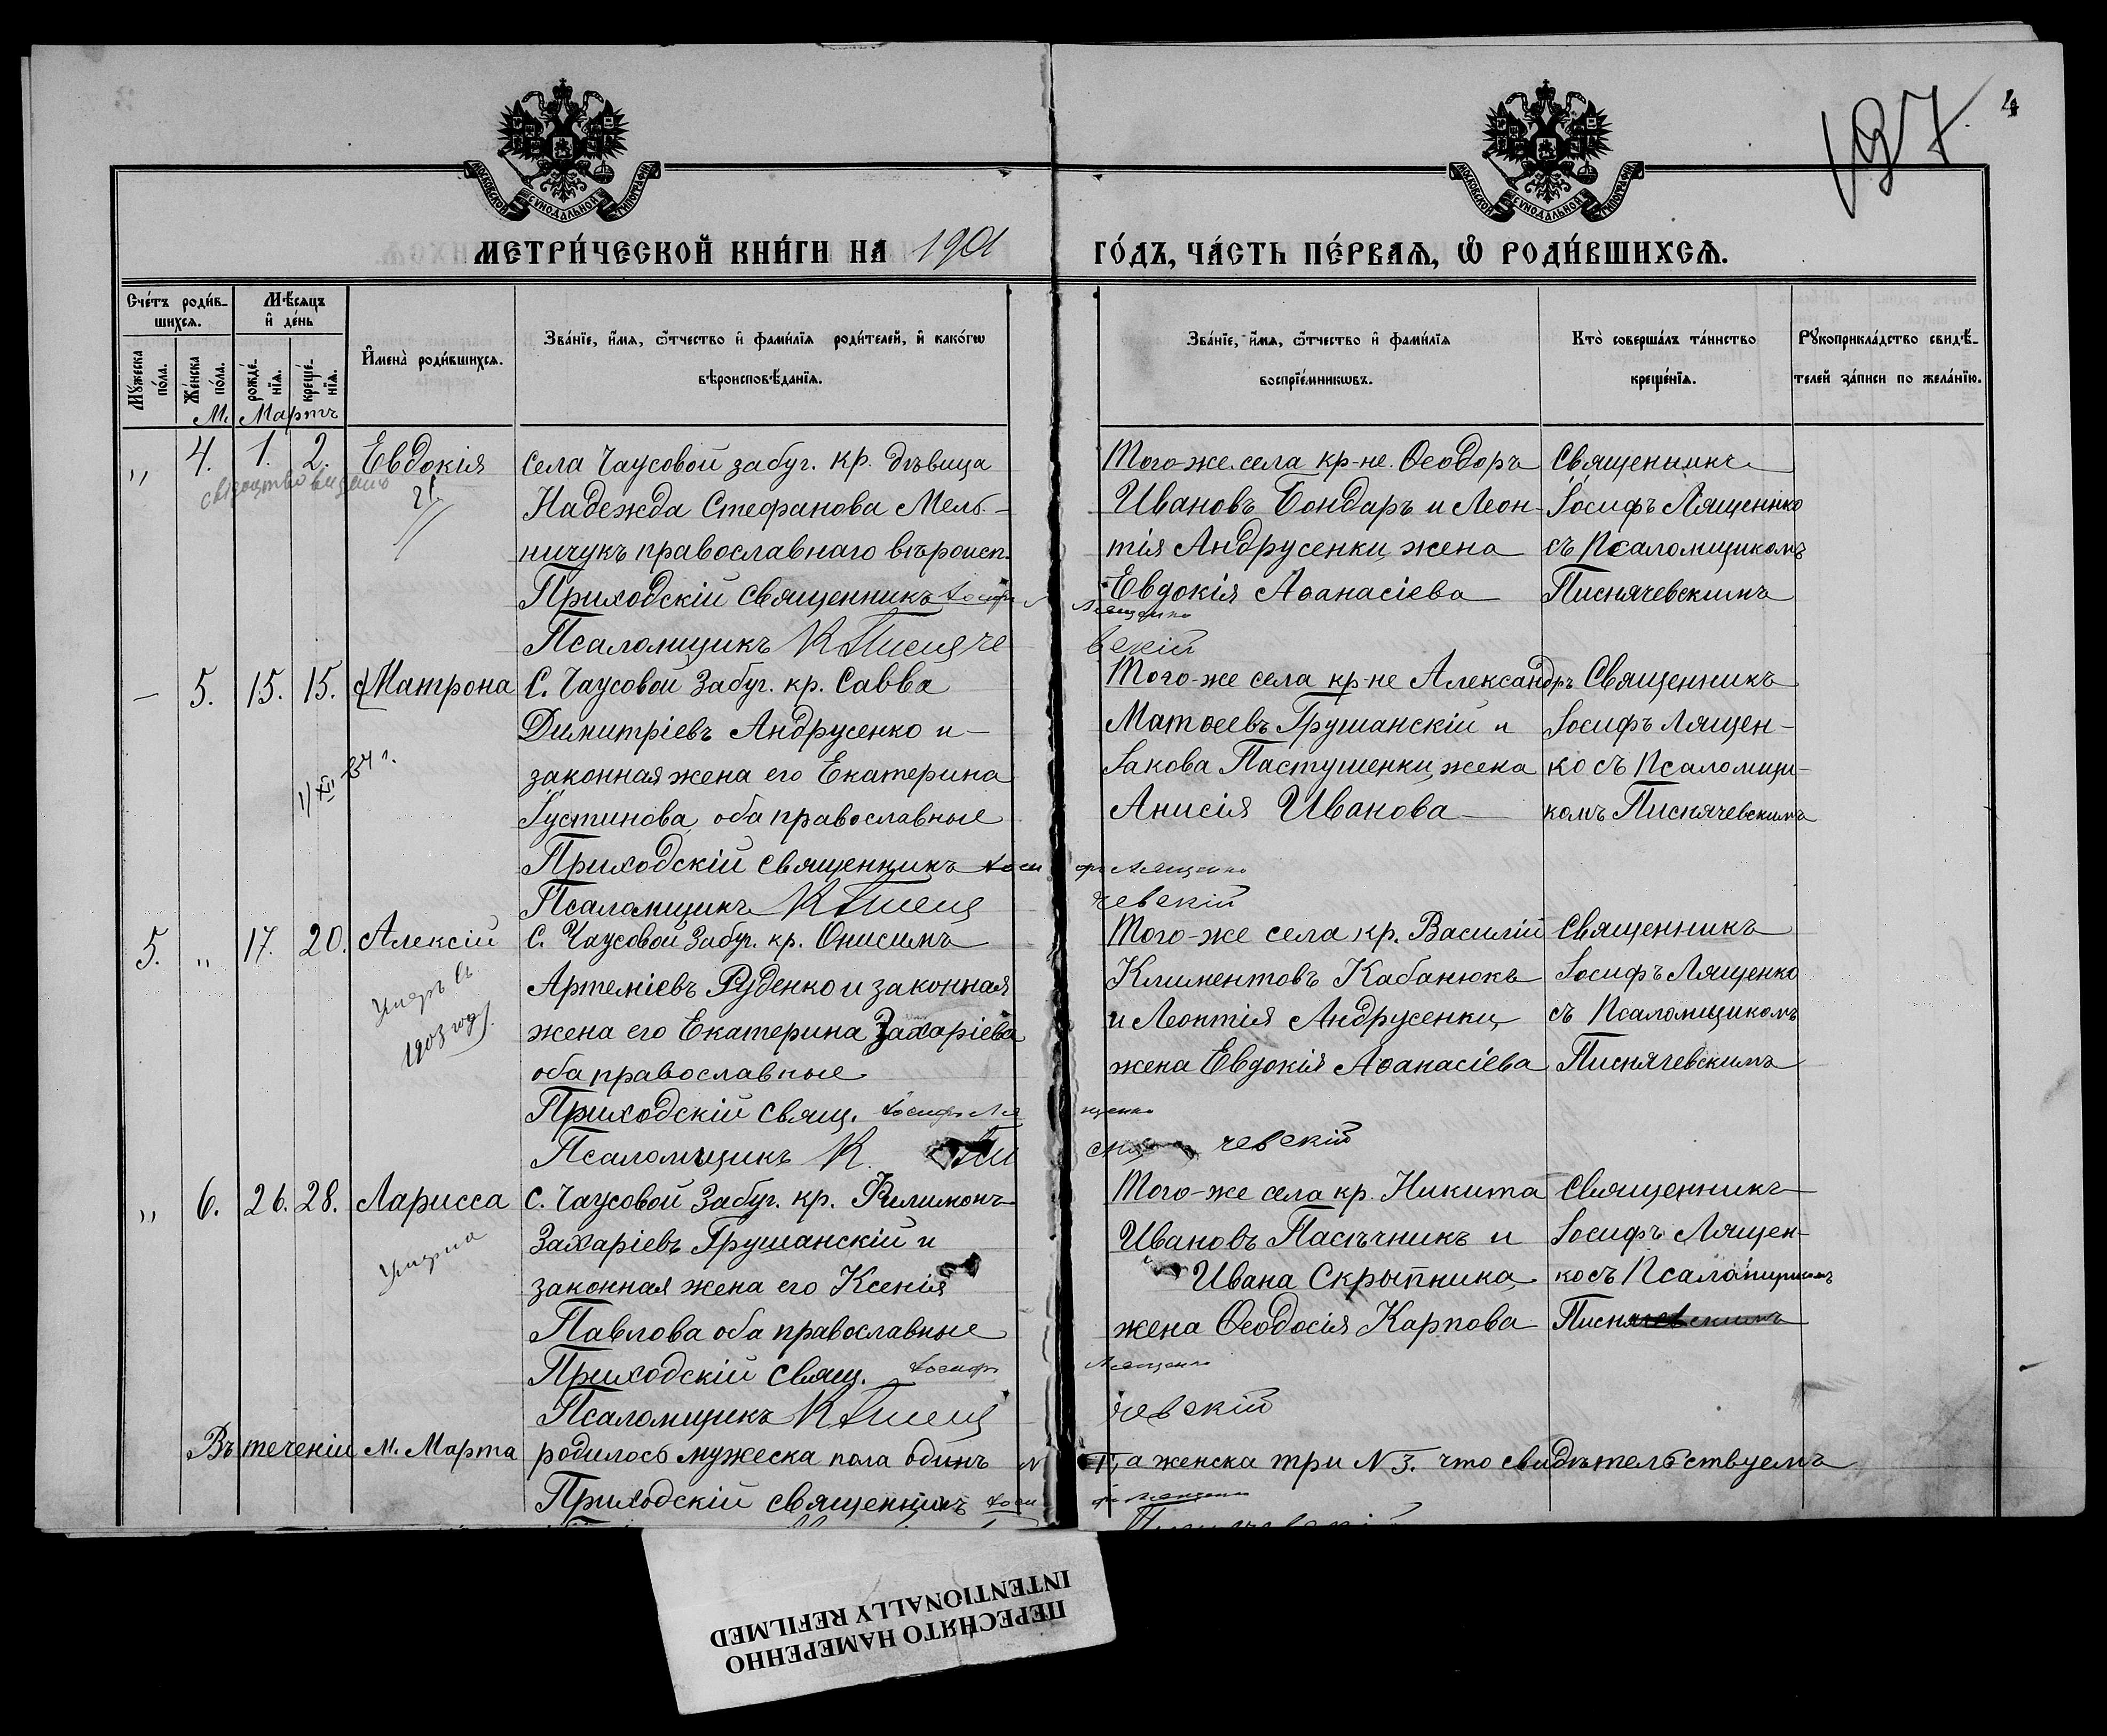 197 4
МОСКОВСКОЙ СУНОДАЛЬНОЙ ТИПОГРАФІИ
МОСКОВСКОЙ СУНОДАЛЬНОЙ ТИПОГРАФІИ
МЕТРИ́ЧЕСКОЙ КНИ́ГИ НА 1901
ГО́ДЪ, ЧА́СТЬ ПЕ́РВАѦ, Ѡ РОДИ́ВШИХСѦ.
Сче́тъ роди́в-
шихсѧ.
Мꙋ́жеска по́ла.
Же́нска по́ла.
Мѣ́сяцъ и де́нь
рожде́-нїѧ.
креще́-нїѧ.
Имена̀ роди́вшихсѧ.
Зва́нїе, и́мѧ, ѻ́тчество и фами́лїѧ роди́телей, и како́гѡ
вѣроисповѣ́данїѧ.
Зва́нїе, и́мѧ, ѻ́тчество и фами́лїѧ
воспрїе́мникѡвъ.
Кто̀ соверша́лъ та́инство
креще́нїѧ.
Рꙋкоприкла́дство свидѣ́-
телей за́писи по жела́нїю.
М. Мартъ
,, 4. 1. 2. Евдокія
Села Чаусовой забуг. кр. дѣвица
Надежда Стефанова Мель-
ничукъ православнаго вѣроисп.
Приходскій священникъ Іосифъ Лященко
Псаломщикъ КПиснячевскій
Того-же села кр-не. Ѳеодоръ
Ивановъ Бондаръ и Леон-
тія Андрусенки жена
Евдокія Аѳанасіева
Священникъ
Іосифъ Лященко
съ Псаломщикомъ
Писнячевскимъ
— 5. 15. 15. Матрона
1/XII-54 г.
С. Чаусовой Забуг. кр. Савва
Димитріевъ Андрусенко и
законная жена его Екатерина
Іустинова оба православные
Приходскій священникъ Іосифъ Лященко
Псаломщикъ К Писнячевскій
Того-же села кр-не Александръ
Матѳеевъ Грушанскій и
Іакова Пастушенки жена
Анисія Иванова
Священникъ
Іосифъ Лящен-
ко съ Псаломщи-
комъ Писнячевскимъ
5. ,, 17. 20. Алексій
Умеръ въ
1903 году.
С. Чаусовой Забуг. кр. Онисимъ
Артеміевъ Руденко и законная
жена его Екатерина Захаріева
оба православные
Приходскій свящ. Іосифъ Лященко
Псаломщикъ К. Писнячевскій
Того-же села кр. Василій
Климентовъ Кабанюкъ
и Леонтія Андрусенки
жена Евдокія Аѳанасіева
Священникъ
Іосифъ Лященко
съ Псаломщикомъ
Писнячевскимъ
,, 6. 26. 28. Ларисса
Умерла
С. Чаусовой Забуг. кр. Филимонъ
Захаріевъ Грушанскій и
законная жена его Ксенія
Павлова оба православные
Приходскій свящ. Іосифъ Лященко
Псаломщикъ К Писнячевскій
Того-же села кр. Никита
Ивановъ Пасѣчникъ и
Ивана Скрыпника
жена Ѳеодосія Карпова
Священникъ
Іосифъ Лящен-
ко съ Псаломщикомъ
Писнячевскимъ
Въ теченіи м. Марта родилось мужеска пола одинъ N 1, а женска три N 3. что свидѣтельствуемъ
Приходскій священникъ Іосифъ Лященко
ПЕРЕСНЯТО НАМЕРЕННО
INTENTIONALLY REFILMED